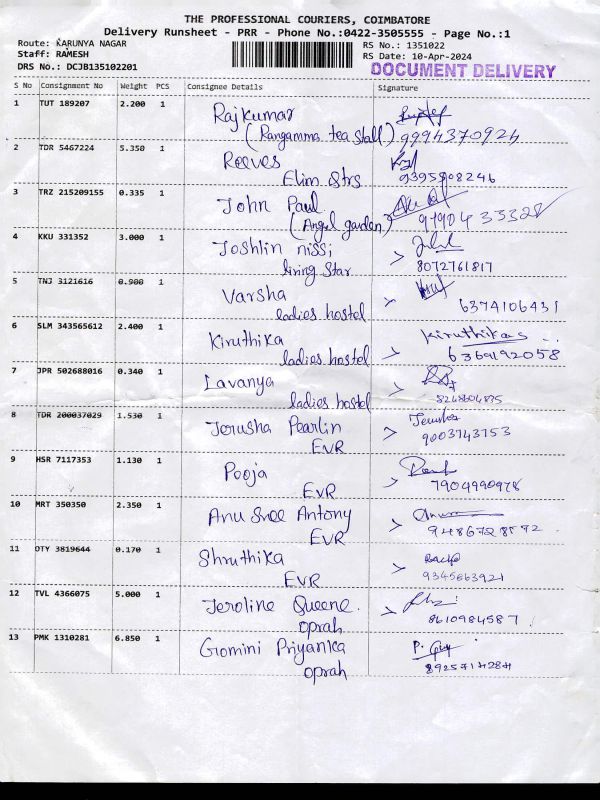 THE PROFESSIONAL COURIERS, COIMBATORE
Delivery Runsheet - PRR - Phone No.:0422-3505555 - Page No.:1
Route: KARUNYA NAGAR RS No.: 1351022
Staff: RAMESH RS Date: 10-Apr-2024
DRS No.: DCJB135102201 DOCUMENT DELIVERY
S No Consignment No Weight PCS Consignee Details Signature
1 TUT 189207 2.200 1 Rajkumar
(Rangamma tea stall) 9994370924
2 TDR 5467224 5.350 1 Reeves
Elim Strs 9395908246
3 TRZ 215209155 0.335 1 John Paul
(Angel garden)
4 KKU 331352 3.000 1 Joshlin nissi
living Star 8072761817
5 TNJ 3121616 0.900 1 Varsha
ladies hostel 6374106431
6 SLM 343565612 2.400 1 Kiruthika Kiruthikas
ladies hostel 6369192058
7 JPR 502688016 0.340 1 Lavanya
ladies hostel
8 TDR 200037029 1.530 1 Jerusha Pearlin
EVR 9003743753
9 HSR 7117353 1.130 1 Pooja
EVR 7904990978
10 MRT 350350 2.350 1 Anu Sree Antony
EVR
11 OTY 3819644 0.170 1 Shruthika
EVR 9345663921
12 TVL 4366075 5.000 1 Jeroline Queene.
oprah 8610984587
13 PMK 1310281 6.850 1 Gomini Priyanka
oprah